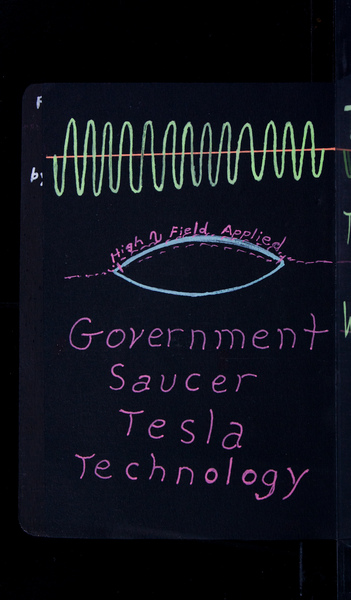 High ~ Field Applied
Government
Saucer
Tesla
Technology